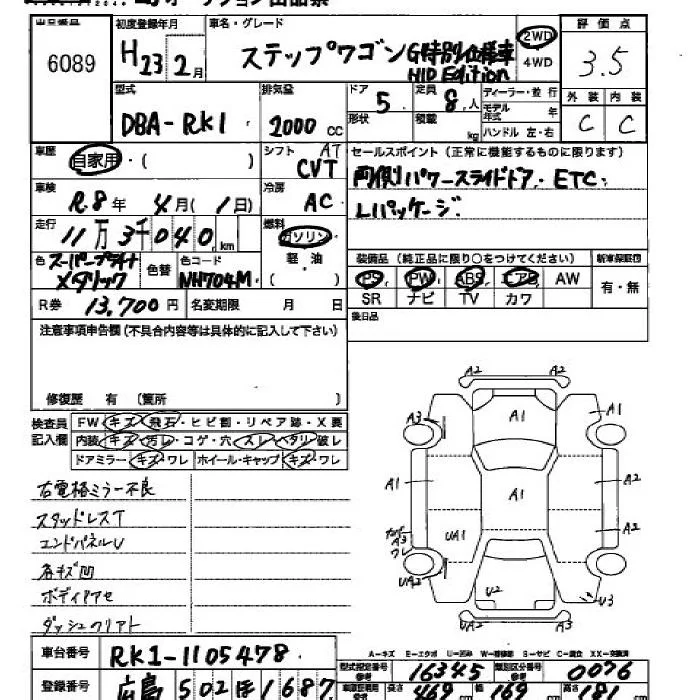 出品番号 6089
初度登録年月 H23年2月
車名・グレード ステップワゴン G特別仕様車 HID Edition
2WD
4WD
評価点 3.5
外装 C 内装 C
型式 DBA-RK1
排気量 2000 cc
ドア 5 定員 8人
形状 積載 kg
ディーラー・並行
モデル年式 年
ハンドル 左・右
車歴 自家用・( )
シフト AT CVT
車検 R8年 4月(1日)
冷房 AC
走行 11万3千040km
燃料 ガソリン
軽・油
( )
セールスポイント(正常に機能するものに限ります)
両側パワースライドドア・ETC・
Lパッケージ
色 スーパープラチナメタリック 色替 色コード NH704M
R券 13,700円 名変期限 月 日
装備品(純正品に限り○をつけてください) 新車保証書
PS PW ABS エアB AW 有・無
SR ナビ TV カワ
後日品
注意事項申告欄(不具合内容等は具体的に記入して下さい)
修復歴 有 〔箇所 〕
検査員記入欄
FW・キズ・飛石・ヒビ割・リペア跡・X要
内装・キズ・汚レ・コゲ・穴・スレ・ヘタリ・破レ
ドアミラー・キズ・ワレ ホイール・キャップ・キズ・ワレ
右電格ミラー不良
スタッドレスT
エンドパネルU
各キズ凹
ボディアセ
ダッシュクリアト
A2
A3 A1 A1
A1 A1 A2
UA1 A2
A3
ワレ
UA2 U2 U3
A3
A-キズ E-エクボ U-凹み W-補修跡 S-サビ C-腐食 XX-交換済
車台番号 RK1-1105478
登録番号 広島 502 ほ 1687
型式指定番号 16345 類別区分番号 0076
長さ 469 cm 幅 169 cm 高さ 181 cm